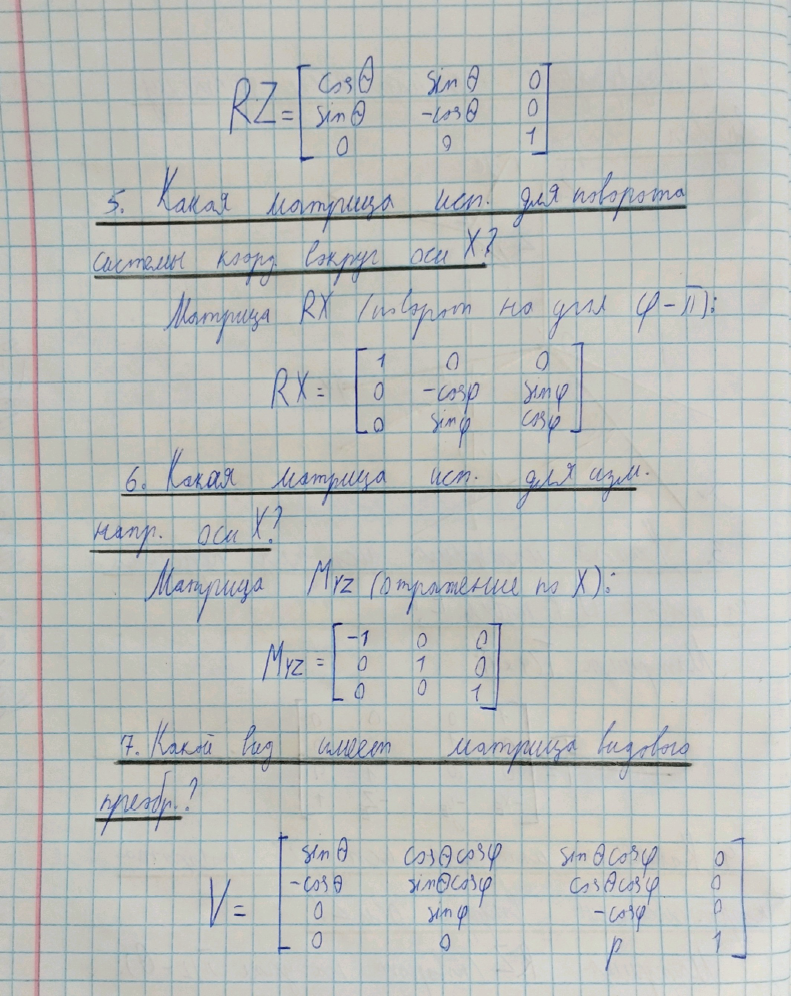 RZ = [ cosθ sinθ 0
sinθ -cosθ 0
0 0 1 ]
5. Какая матрица исп. для поворота
системы коорд. вокруг оси X?
Матрица RX (поворот на угол φ-π):
RX = [ 1 0 0
0 -cosφ sinφ
0 sinφ cosφ ]
6. Какая матрица исп. для изм.
напр. оси X?
Матрица Myz (отражение по X):
Myz = [ -1 0 0
0 1 0
0 0 1 ]
7. Какой вид имеет матрица видового
преобр.?
V = [ sinθ cosθcosφ sinθcosφ 0
-cosθ sinθcosφ cosθcosφ 0
0 sinφ -cosφ 0
0 0 p 1 ]